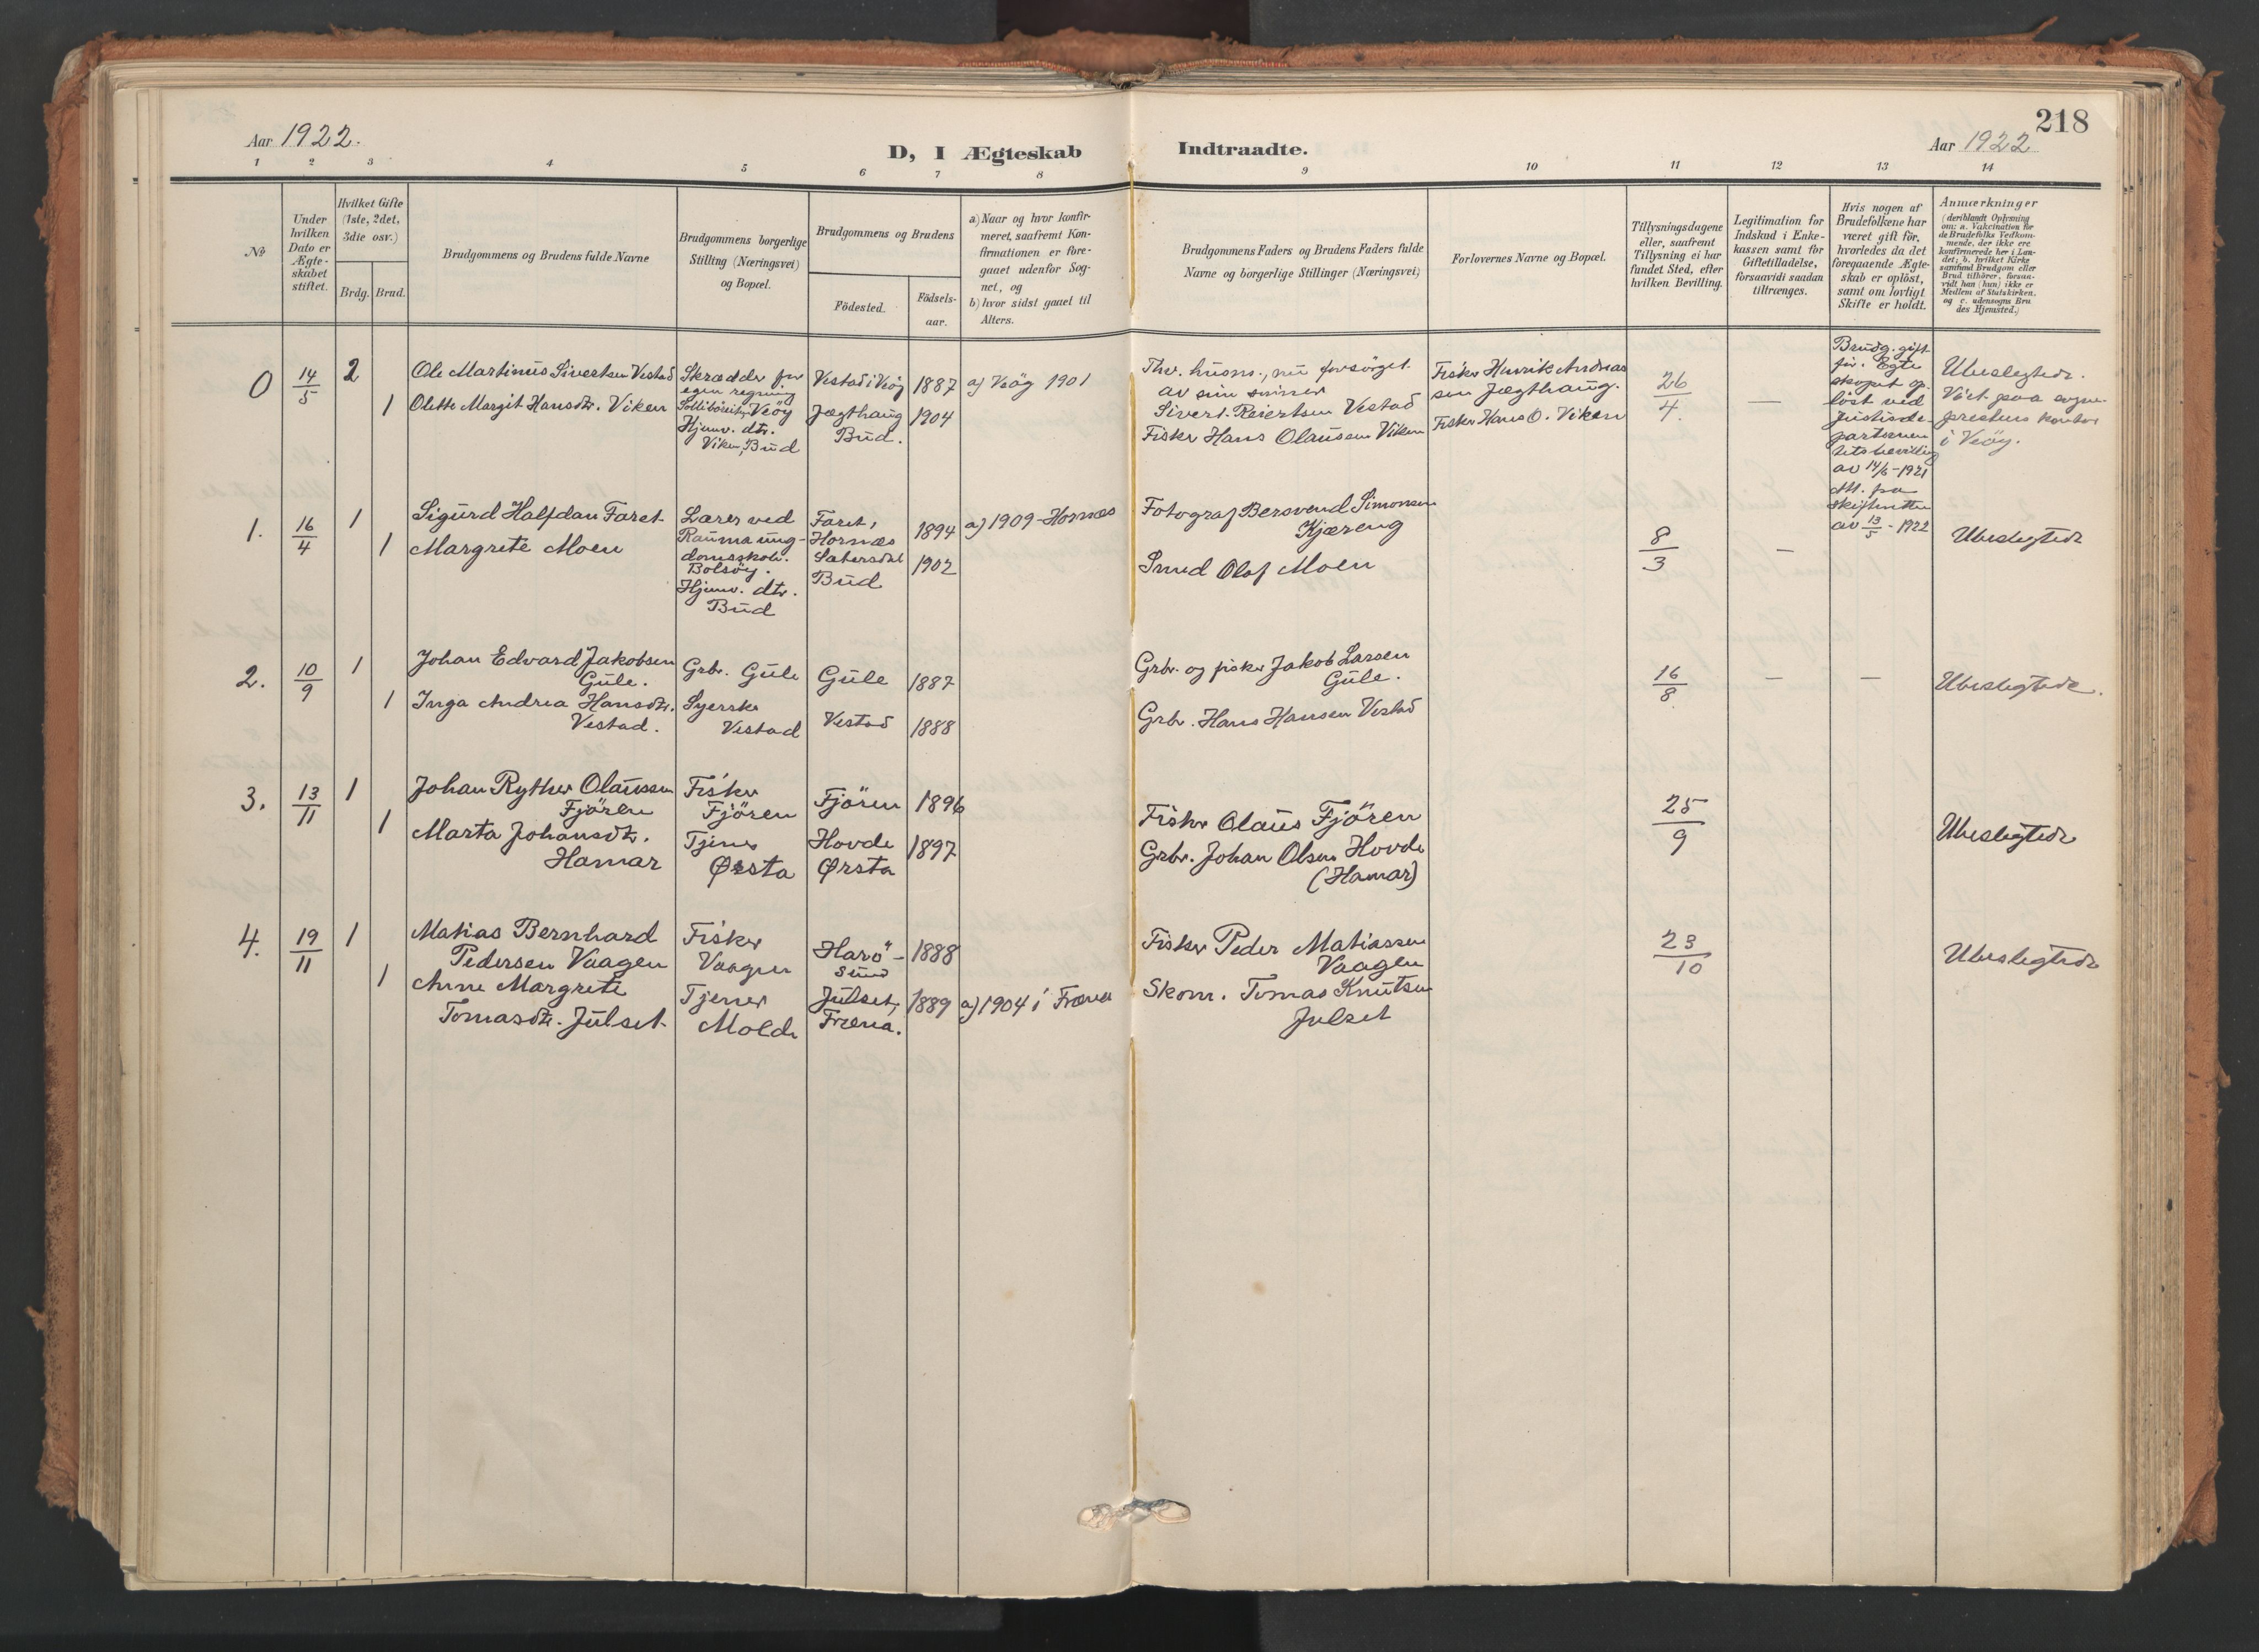 218
Aar 1922.
D, I Ægteskab
Indtraadte.
Aar 1922
1 2 3 4 5 6 7 8 9 10 11 12 13 14
№
Under
hvilken
Dato er
Ægte-
skabet
stiftet.
Hvilket Gifte
(1ste, 2det,
3die osv.)
Brdg. Brud.
Brudgommens og Brudens fulde Navne
Brudgommens borgerlige
Stilling (Næringsvei)
og Bopæl.
Brudgommens og Brudens
Födested.
Födsels-
aar.
a) Naar og hvor konfir-
meret, saafremt Kon-
firmationen er fore-
gaaet udenfor Sog-
net, og
b) hvor sidst gaaet til
Alters.
Brudgommens Faders og Brudens Faders fulde
Navne og borgerlige Stillinger (Næringsvei)
Forlovernes Navne og Bopæl.
Tillysningsdagene
eller, saafremt
Tillysning ei har
fundet Sted, efter
hvilken Bevilling.
Legitimation for
Indskud i Enke-
kassen samt for
Giftetilladelse,
forsaavidt saadan
tiltrænges.
Hvis nogen af
Brudefolkene har
været gift för,
hvorledes da det
foregaaende Ægte-
skab er oplöst,
samt om lovligt
Skifte er holdt.
Anmærkninger
(deriblandt Oplysning
om: a. Vakcination for
de Brudefolks Vedkom-
mende, der ikke ere
konfirmerede her i Lan-
det; b. hvilket Kirke
samfund Brudgom eller
Brud tilhörer, forsaa-
vidt han (hun) ikke er
Medlem af Statskirken,
og c. udensogns Bru
des Hjemsted.)
0
14/5
2
1
Ole Martinus Sivertsen Vestad
Olette Margit Hansdtr. Viken
Skrædder for
egen regning
Veöy
Hjemv. dtr.
Viken, Bud
Vestad i Veöy
Jægthaug
Bud.
1887
1904
a) Veöy 1901
Fhv. husm., nu forsörget
av sine sönner
Sivert Reiertsen Vestad
Fisker Hans Olausen Viken
Fisker Henrik Andreas
sen Jægthaug.
Fisker Hans O. Viken
26/4.
—
Brudg. gift
för. Egte
skapet op-
löst ved
Justisde-
partemen
tets bevilling
av 14/6-1921
Att. fra
skifteretten
av 13/5-1922
Ubeslegtede.
Viet paa sogne-
prestens kontor
i Veöy.
1.
16/4
1
1
Sigurd Halfdan Faret
Margrete Moen
Lærer ved
Rauma ung-
domsskole.
Bolsöy.
Hjemv. dtr.
Bud
Faret,
Hornæs
Sætersdal
Bud
1894
1902
a) 1909 Hornæs
Fotograf Bersvend Simonsen
Kjæreng
Smed Olaf Moen
8/3
—
Ubeslegtede
2.
10/9
1
1
Johan Edvard Jakobsen
Gule.
Inga Andrea Hansdtr.
Vestad.
Grbr. Gule
Syerske
Vestad
Gule
Vestad
1887
1888
Grbr. og fisker Jakob Larsen
Gule.
Grbr. Hans Hansen Vestad
16/8
—
—
Ubeslegtede.
3.
13/11
1
1
Johan Ryther Olaussen
Fjören
Marta Johansdtr.
Hamar
Fisker
Fjören
Tjener
Ørsta
Fjören
Hovde
Ørsta
1896
1897
Fisker Olaus Fjören
Grbr. Johan Olsen Hovde
(Hamar)
25/9
Ubeslegtede
4.
19/11
1
1
Matias Bernhard
Pedersen Vaagen
Anne Margrete
Tomasdtr. Julset
Fisker
Vaagen
Tjener
Molde
Harö-
sund
Julset,
Fræna.
1888
1889
a) 1904 i Fræna
Fisker Peder Matiassen
Vaagen
Skom. Tomas Knutsen
Julset
23/10
Ubeslegtede